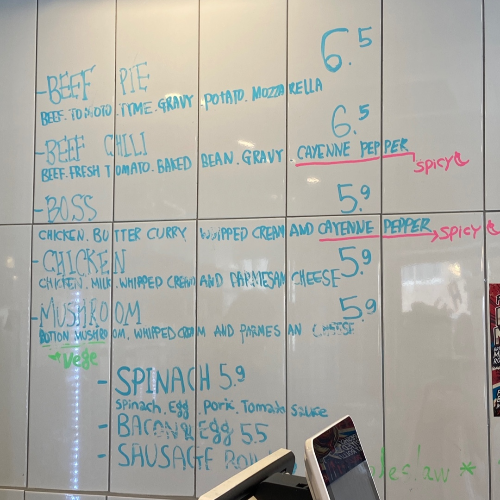 - BEEF PIE 6.5
BEEF. TOMOTO. TYME. GRAVY. POTATO. MOZZARELLA
- BEEF CHILI 6.5
BEEF. FRESH TOMATO. BAKED BEAN. GRAVY. CAYENNE PEPPER
spicy
- BOSS 5.9
CHICKEN. BUTTER CURRY WHIPPED CREAM AND CAYENNE PEPPER → SPICY
- CHICKEN 5.9
CHICKEN. MILK. WHIPPED CREAM AND PARMESAN CHEESE
- MUSHROOM 5.9
BUTTON MUSHROOM, WHIPPED CREAM AND PARMESAN CHEESE
Vege
- SPINACH 5.9
Spinach, Egg, Pork, Tomato Sauce
- BACON & Egg 5.5
- SAUSAGE